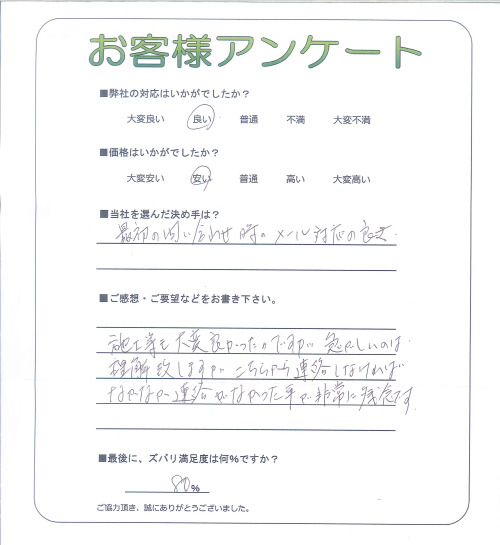 お客様アンケート
■弊社の対応はいかがでしたか？
大変良い 良い 普通 不満 大変不満
■価格はいかがでしたか？
大変安い 安い 普通 高い 大変高い
■当社を選んだ決め手は？
最初の問い合わせ時のメール対応の良さ
■ご感想・ご要望などをお書き下さい。
施工等も大変良かったのですが 急がしいのは
理解致しますが こちらから連絡しなければ
なかなか連絡がなかった事が非常に残念です
■最後に、ズバリ満足度は何%ですか？
80%
ご協力頂き、誠にありがとうございました。